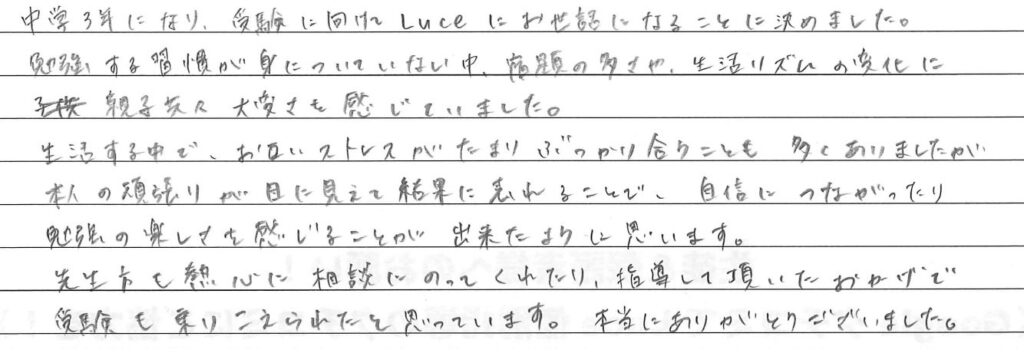 中学3年になり、受験に向けてLuceにお世話になることに決めました。
勉強する習慣が身についていない中、宿題の多さや、生活リズムの変化に
親子共々 大変さも感じていました。
生活する中で、お互いストレスがたまりぶつかり合うことも 多くありましたが
本人の頑張りが目に見えて結果に表れることで、自信につながったり
勉強の楽しさを感じることが 出来たように思います。
先生方も熱心に相談にのってくれたり、指導して頂いたおかげで
受験も乗りこえられたと思っています。本当にありがとうございました。